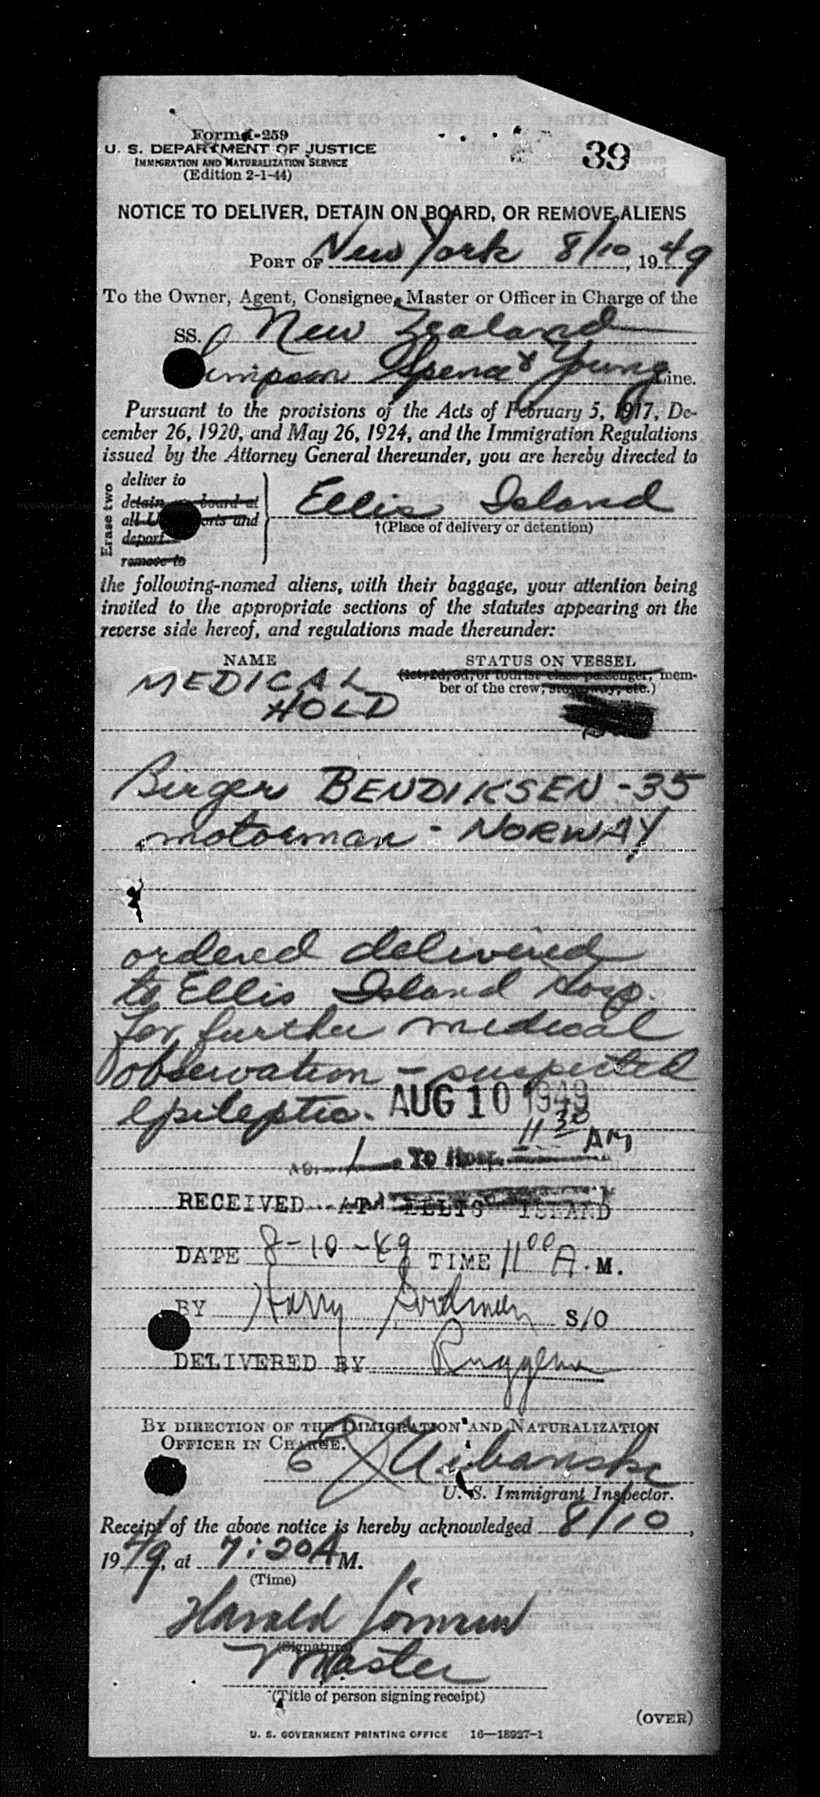 Form I-259
39
U. S. DEPARTMENT OF JUSTICE
IMMIGRATION AND NATURALIZATION SERVICE
(Edition 2-1-44)
NOTICE TO DELIVER, DETAIN ON BOARD, OR REMOVE ALIENS
PORT OF New York 8/10, 1949
To the Owner, Agent, Consignee, Master or Officer in Charge of the
SS. New Zealand
Simpson Spence & Young Line.
Pursuant to the provisions of the Acts of February 5, 1917, De-
cember 26, 1920, and May 26, 1924, and the Immigration Regulations
issued by the Attorney General thereunder, you are hereby directed to
Erase two
deliver to
detain on board at
all U. S. ports and
deport
remove to
Ellis Island
†(Place of delivery or detention)
the following-named aliens, with their baggage, your attention being
invited to the appropriate sections of the statutes appearing on the
reverse side hereof, and regulations made thereunder:
NAME STATUS ON VESSEL
(1st, 2d, 3d, or tourist class passenger, mem-
ber of the crew, stowaway, etc.)
MEDICAL
HOLD
Birger BENDIKSEN - 35
motorman - NORWAY
ordered delivered
to Ellis Island Hosp.
for further medical
observation - suspected
epileptic. AUG 10 1949
11 30 AM
1 To Hosp.
RECEIVED AT ELLIS ISLAND
DATE 8-10-49 TIME 11 00 A.M.
BY Harry Goodman S/O
DELIVERED BY
BY DIRECTION OF THE IMMIGRATION AND NATURALIZATION
OFFICER IN CHARGE.
U. S. Immigrant Inspector.
Receipt of the above notice is hereby acknowledged 8/10,
1949, at 7:20 A M.
(Time)
Harald
(Signature)
Master
(Title of person signing receipt)
(OVER)
U. S. GOVERNMENT PRINTING OFFICE 16—18927-1